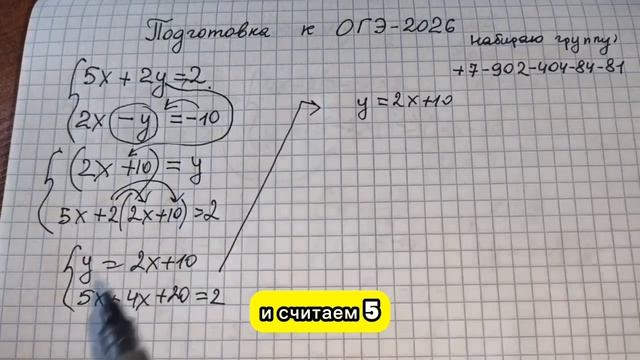 Подготовка к ОГЭ-2026
набираю группу,
+7-902-404-84-81
5x + 2y = 2
2x - y = -10
(2x + 10) = y
5x + 2(2x+10) = 2
y = 2x+10
5x + 4x + 20 = 2
y = 2x+10
и считаем 5